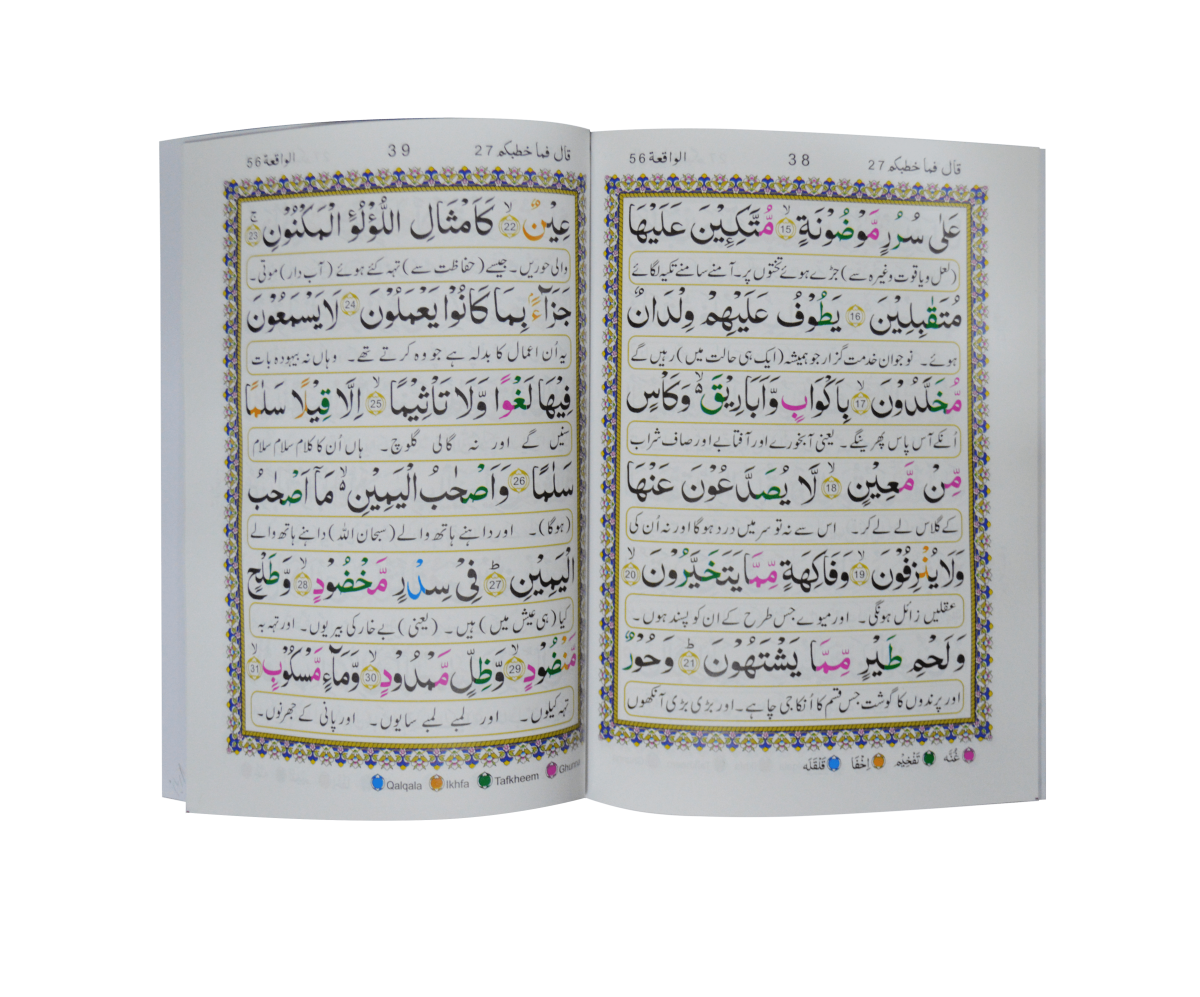 قال فما خطبكم 27
38
الواقعة 56
عَلٰى سُرُرٍ مَّوْضُوْنَةٍ ۙ 15 مُّتَّكِـِٕيْنَ عَلَيْهَا
(لعل و یاقوت وغیرہ سے) جڑے ہوئے تختوں پر۔ آمنے سامنے تکیہ لگائے
مُتَقٰبِلِيْنَ 16 يَطُوْفُ عَلَيْهِمْ وِلْدَانٌ
ہوئے۔ نوجوان خدمت گزار جو ہمیشہ (ایک ہی حالت میں) رہیں گے
مُّخَلَّدُوْنَ ۙ 17 بِاَكْوَابٍ وَّاَبَارِيْقَ ۙ۬ وَكَاْسٍ
اُنکے آس پاس پھرینگے۔ یعنی آبخورے اور آفتابے اور صاف شراب
مِّنْ مَّعِيْنٍ ۙ 18 لَّا يُصَدَّعُوْنَ عَنْهَا
کے گلاس لے لے کر۔ اس سے نہ تو سر میں درد ہوگا اور نہ اُن کی
وَلَا يُنْزِفُوْنَ ۙ 19 وَفَاكِهَةٍ مِّمَّا يَتَخَيَّرُوْنَ ۙ 20
عقلیں زائل ہونگی۔ اور میوے جس طرح کے ان کو پسند ہوں۔
وَلَحْمِ طَيْرٍ مِّمَّا يَشْتَهُوْنَ ؕ 21 وَحُوْرٌ
اور پرندوں کا گوشت جس قسم کا اُنکا جی چاہے۔ اور بڑی بڑی آنکھوں
غُنَّه تَفْخِيْم اِخْفَا قَلْقَلَه
قال فما خطبكم 27
39
الواقعة 56
عِيْنٌ ۙ 22 كَاَمْثَالِ اللُّؤْلُؤِ الْمَكْنُوْنِ ۚ 23
والی حوریں۔ جیسے (حفاظت سے) تہہ کئے ہوئے (آب دار) موتی۔
جَزَآءًۢ بِمَا كَانُوْا يَعْمَلُوْنَ 24 لَا يَسْمَعُوْنَ
یہ اُن اعمال کا بدلہ ہے جو وہ کرتے تھے۔ وہاں نہ بیہودہ بات
فِيْهَا لَغْوًا وَّلَا تَاْثِيْمًا ۙ 25 اِلَّا قِيْلًا سَلٰمًا
سنیں گے اور نہ گالی گلوچ۔ ہاں اُن کا کلام سلام سلام
سَلٰمًا 26 وَاَصْحٰبُ الْيَمِيْنِ ۙ۬ مَاۤ اَصْحٰبُ
(ہوگا)۔ اور داہنے ہاتھ والے (سبحان اللہ) داہنے ہاتھ والے
الْيَمِيْنِ ؕ 27 فِيْ سِدْرٍ مَّخْضُوْدٍ ۙ 28 وَّطَلْحٍ
کیا (ہی عیش میں) ہیں۔ (یعنی) بے خار کی بیریوں۔ اور تہہ بہ
مَّنْضُوْدٍ ۙ 29 وَّظِلٍّ مَّمْدُوْدٍ ۙ 30 وَّمَآءٍ مَّسْكُوْبٍ ۙ 31
تہہ کیلوں۔ اور لمبے لمبے سایوں۔ اور پانی کے جھرنوں۔
Qalqala Ikhfa Tafkheem